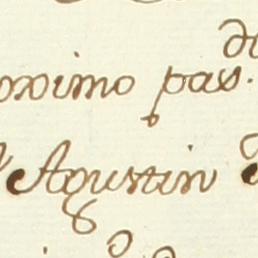 oximo pas.
Agustin